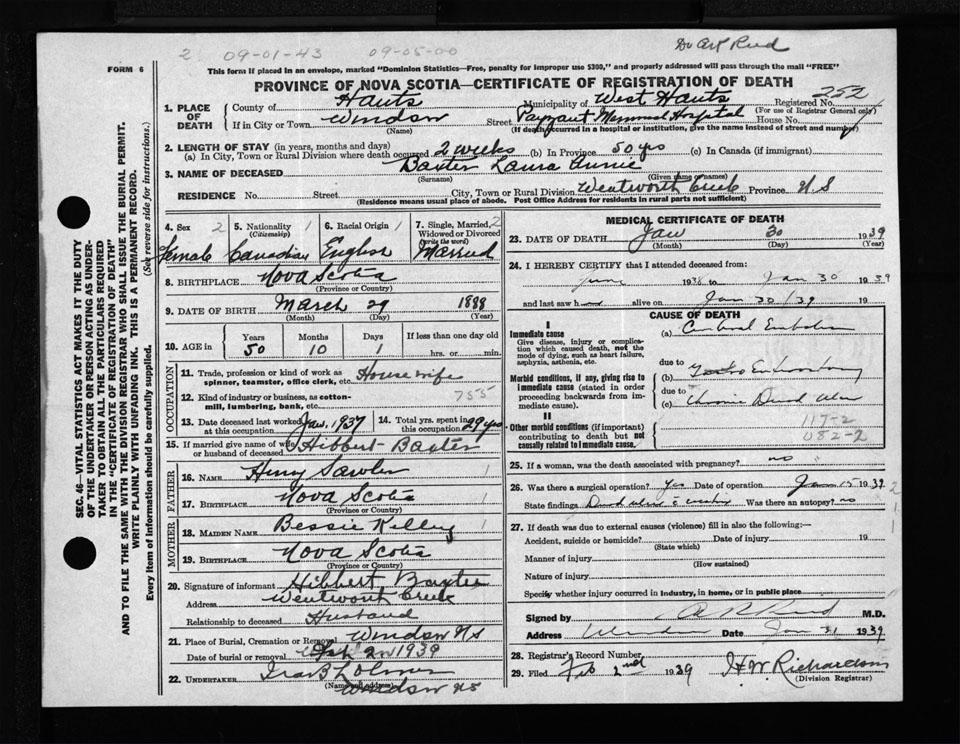 2 09-01-43 09-05-00 Dr A R Reid
FORM 6
This form if placed in an envelope, marked "Dominion Statistics—Free, penalty for improper use $300," and properly addressed will pass through the mail "FREE"
PROVINCE OF NOVA SCOTIA—CERTIFICATE OF REGISTRATION OF DEATH
252
1. PLACE OF DEATH County of Hants Municipality of West Hants Registered No.
(For use of Registrar General only)
If in City or Town Windsor Street Payzant Memorial Hospital House No.
(Name) (If death occurred in a hospital or institution, give the name instead of street and number)
2. LENGTH OF STAY (in years, months and days)
(a) In City, Town or Rural Division where death occurred 2 weeks (b) In Province 50 yrs (c) In Canada (if immigrant)
3. NAME OF DECEASED Baxter Laura Annie
(Surname) (Given name or names)
RESIDENCE No. Street City, Town or Rural Division Wentworth Creek Province N.S
(Residence means usual place of abode. Post Office Address for residents in rural parts not sufficient)
4. Sex 2 5. Nationality 1 6. Racial Origin 1 7. Single, Married, 2
(Citizenship) Widowed or Divorced
(write the word)
Female Canadian English Married
8. BIRTHPLACE Nova Scotia
(Province or Country)
9. DATE OF BIRTH March 29 1888
(Month) (Day) (Year)
10. AGE in Years Months Days If less than one day old
50 10 1 hrs. or min.
OCCUPATION
11. Trade, profession or kind of work as Housewife
spinner, teamster, office clerk, etc.
12. Kind of industry or business, as cotton- 755
mill, lumbering, bank, etc.
13. Date deceased last worked at this occupation Jan. 1937 14. Total yrs. spent in this occupation 29 yrs
15. If married give name of wife or husband of deceased Hibbert Baxter
FATHER
16. NAME Henry Sawler 1
17. BIRTHPLACE Nova Scotia 1
(Province or Country)
MOTHER
18. MAIDEN NAME Bessie Kelley 1
19. BIRTHPLACE Nova Scotia
(Province or Country)
20. Signature of informant Hibbert Baxter
Address Wentworth Creek
Relationship to deceased Husband
21. Place of Burial, Cremation or Removal Windsor NS
Date of burial or removal 2nd 1939
22. UNDERTAKER Ira B
(Name and address) Windsor NS
MEDICAL CERTIFICATE OF DEATH
23. DATE OF DEATH Jan 30 1939
(Month) (Day) (Year)
24. I HEREBY CERTIFY that I attended deceased from:
June 1938 to Jan 30 1939
and last saw h alive on Jan 30/39 19
CAUSE OF DEATH
I
Immediate cause (a) Cerebral Embolism
Give disease, injury or complication which caused death, not the mode of dying, such as heart failure, asphyxia, asthenia, etc.
due to
Morbid conditions, if any, giving rise to immediate cause (stated in order proceeding backwards from immediate cause). (b) Gastro Enterostomy
due to
(c) Chronic Duod Ulcer
II
Other morbid conditions (if important) contributing to death but not causally related to immediate cause.
117-2
082-2
25. If a woman, was the death associated with pregnancy? no
26. Was there a surgical operation? Yes Date of operation Jan 15 1939 2
State findings Duod ulcer Was there an autopsy? no 1
1
27. If death was due to external causes (violence) fill in also the following:—
Accident, suicide or homicide? Date of injury 19
(State which)
Manner of injury
(How sustained)
Nature of injury
Specify whether injury occurred in industry, in home, or in public place
Signed by A R Reid M.D.
Address Windsor Date Jan 31 1939
28. Registrar's Record Number
29. Filed Feb 2nd 1939 H.W. Richardson
(Division Registrar)
SEC. 46—VITAL STATISTICS ACT MAKES IT THE DUTY
OF THE UNDERTAKER OR PERSON ACTING AS UNDER-
TAKER TO OBTAIN ALL THE PARTICULARS REQUIRED
IN THE "CERTIFICATE OF REGISTRATION OF DEATH"
AND TO FILE THE SAME WITH THE DIVISION REGISTRAR WHO SHALL ISSUE THE BURIAL PERMIT.
WRITE PLAINLY WITH UNFADING INK. THIS IS A PERMANENT RECORD.
Every item of information should be carefully supplied. (See reverse side for instructions.)